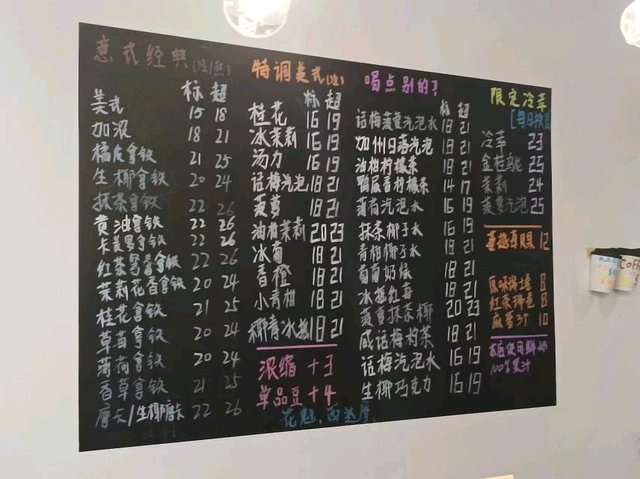 意式经典(冷/热)
标 超
美式 15 18
加浓 18 21
橘皮拿铁 21 25
生椰拿铁 20 24
抹茶拿铁 22 26
黄油拿铁 22 26
卡美罗拿铁 22 26
红茶鸳鸯拿铁 22 26
茉莉花香拿铁 20 24
桂花拿铁 21 25
草莓拿铁 20 24
薄荷拿铁 20 24
香草拿铁 21 25
摩卡/生椰摩卡 22 26
特调美式(冷)
标 超
桂花 16 19
冰茉莉 16 19
汤力 16 19
话梅汽泡 18 21
菠萝 18 21
油柑茉莉 20 23
冰葡 18 21
香橙 18 21
小青柑 18 21
椰青冰摇 18 21
浓缩 +3
单品豆 +4
花魁.西达摩
喝点别的?
标 超
话梅菠萝汽泡水 18 21
加州日落汽泡 18 21
油柑柠檬茶 18 21
鸭屎香柠檬茶 14 17
薄荷汽泡水 16 19
抹茶椰子水 18 21
青柑椰子水 18 21
葡萄奶绿 18 21
冰摇红莓 18 21
菠萝抹茶椰 20 23
咸话梅柠茶 18 21
话梅汽泡水 16 19
生椰巧克力 16 19
限定冷萃
冷萃 23
金桂乌龙 25
茉莉 24
菠萝汽泡 25
12
原味瑞士卷 8
红茶瑞卷 8
麻薯3个 10
本店使用鲜奶
100%果汁